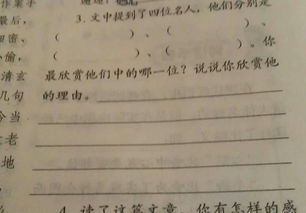 3.文中提到了四位名人，他们分别是
（　　　　）、（　　　　）、
（　　　　）、（　　　　）。你
最欣赏他们中的哪一位？说说你欣赏他
的理由。
4.读了这篇文章，你有怎样的感
最后，
偷，
清玄
几句
今当
老
地